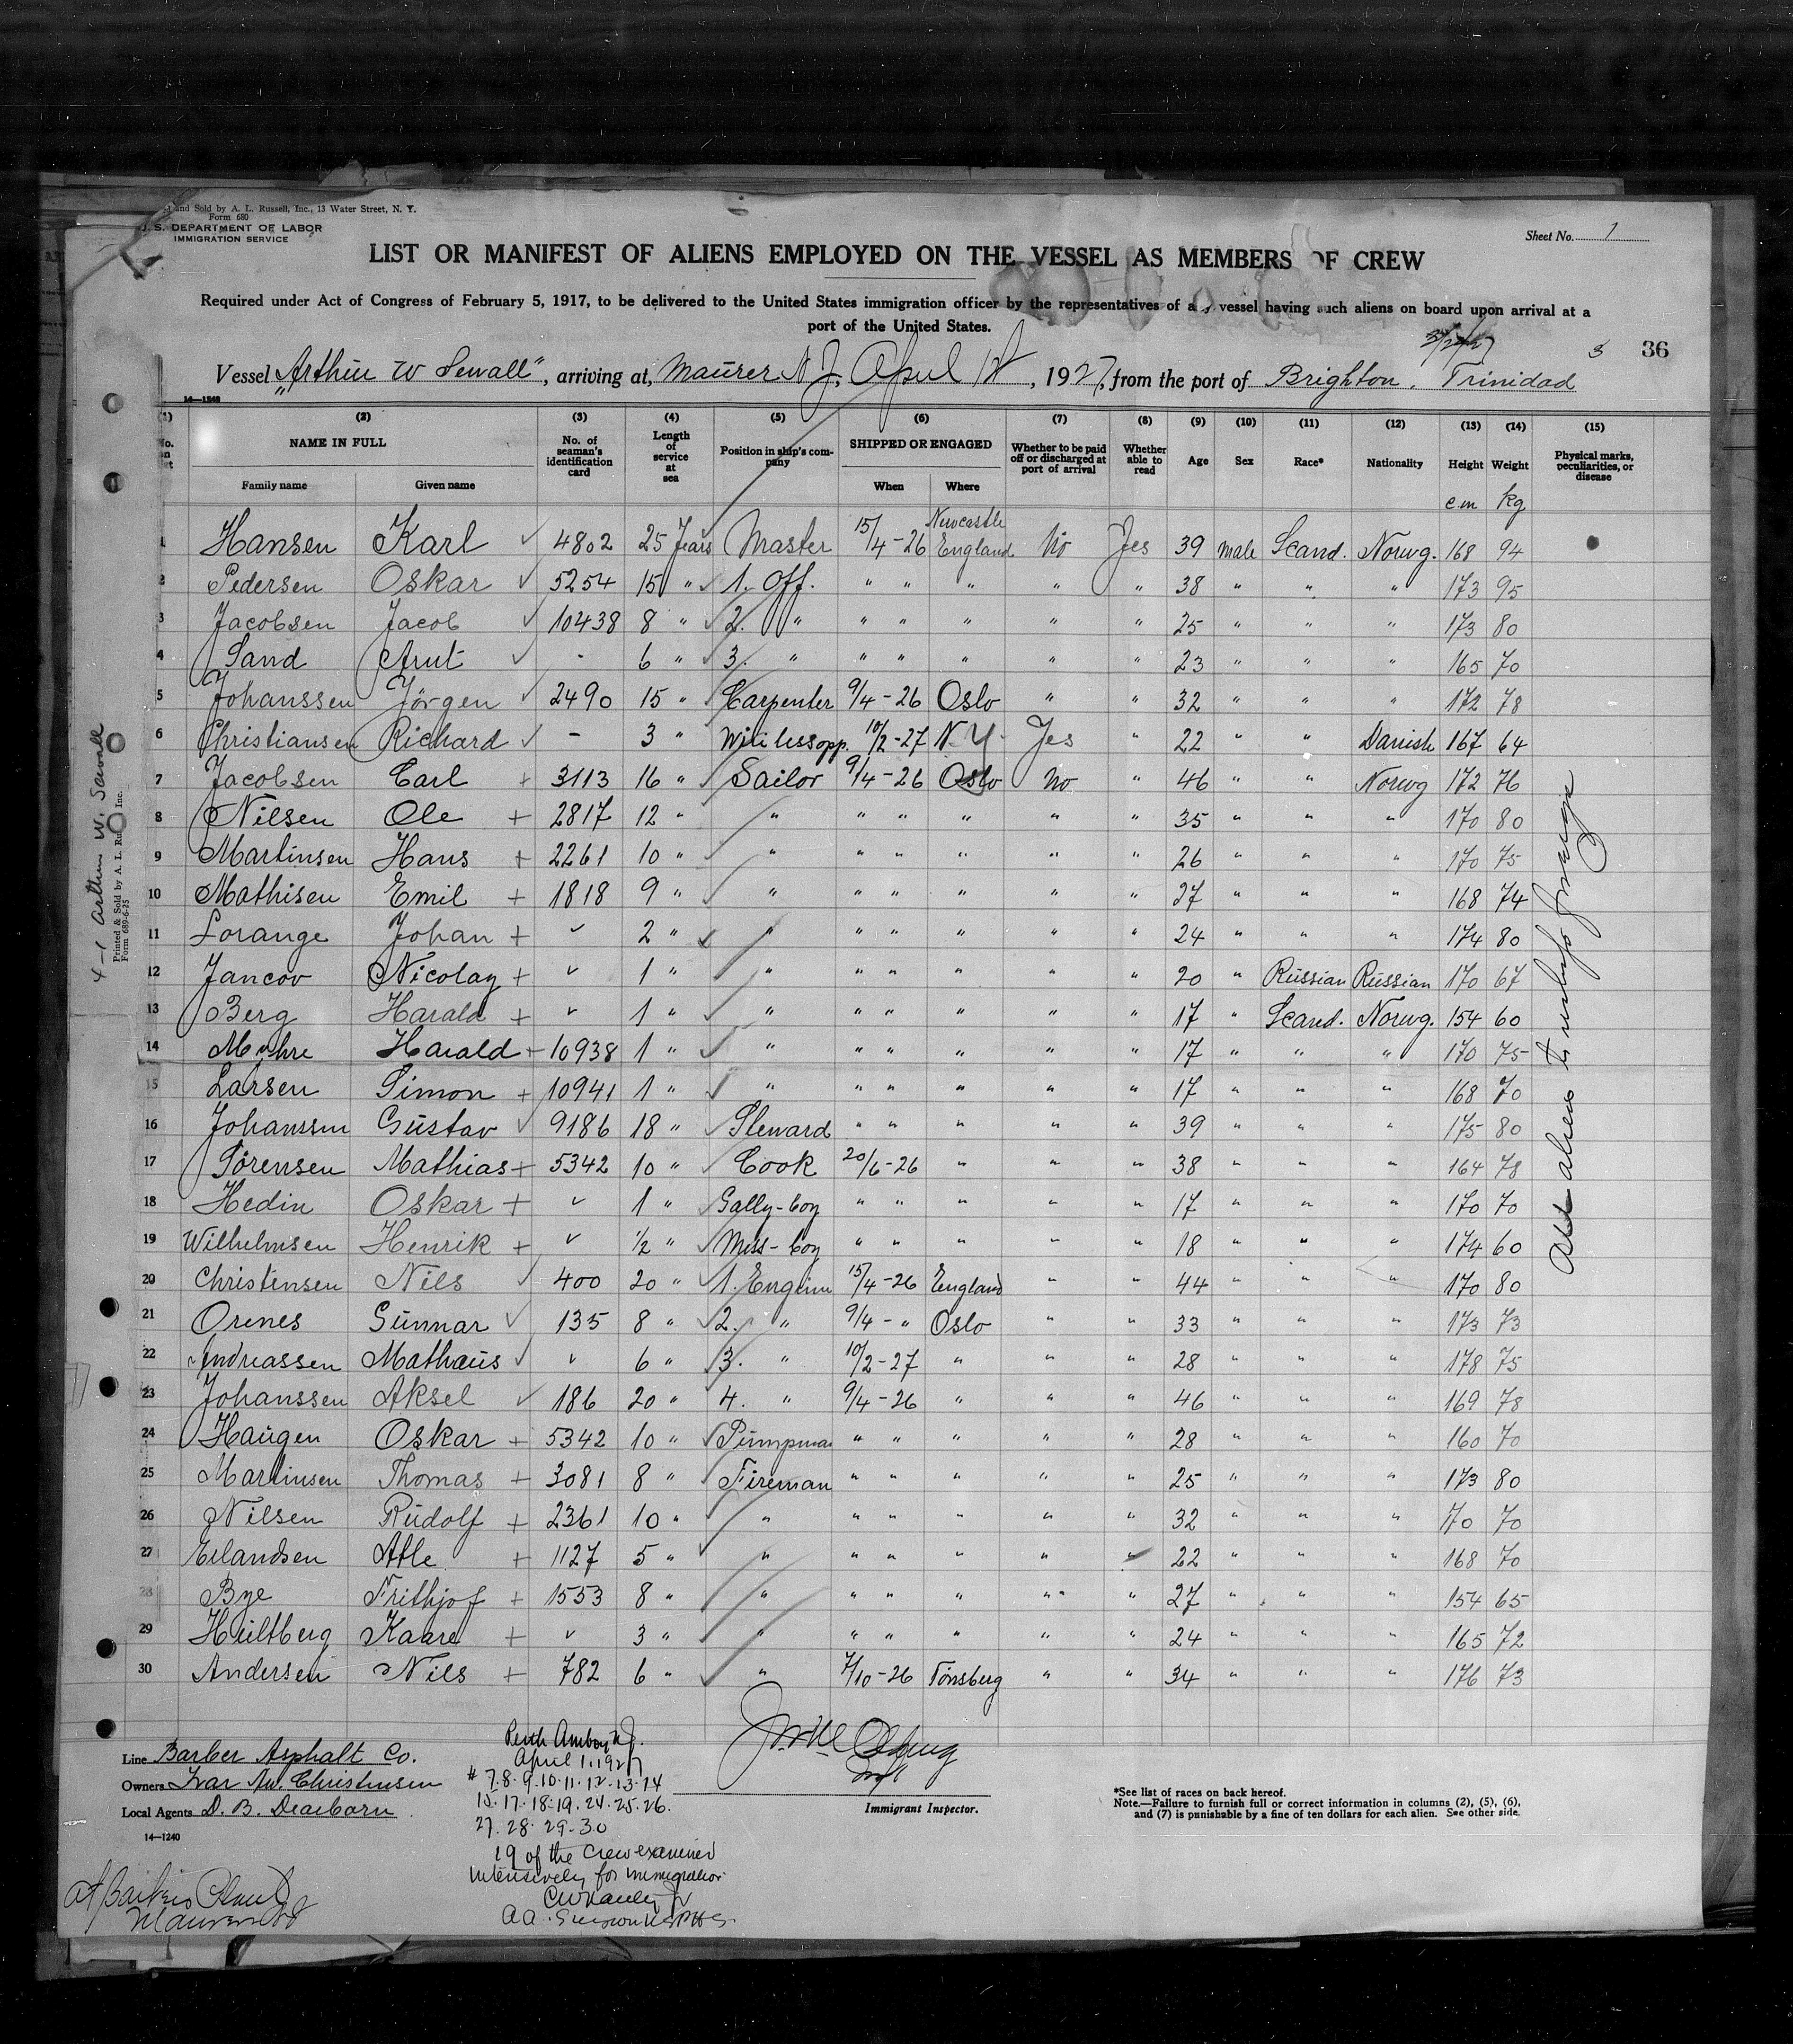 and Sold by A. L. Russell, Inc., 13 Water Street, N. Y.
Form 680
U. S. DEPARTMENT OF LABOR
IMMIGRATION SERVICE
Sheet No. 1
LIST OR MANIFEST OF ALIENS EMPLOYED ON THE VESSEL AS MEMBERS OF CREW
Required under Act of Congress of February 5, 1917, to be delivered to the United States immigration officer by the representatives of any vessel having such aliens on board upon arrival at a
port of the United States.
36
Vessel "Arthur W Sewall", arriving at, Maurer N.J., April 1st, 1927, from the port of Brighton. Trinidad
14—1240
(1) (2) (3) (4) (5) (6) (7) (8) (9) (10) (11) (12) (13) (14) (15)
NAME IN FULL No. of seaman's identification card Length of service at sea Position in ship's company SHIPPED OR ENGAGED Whether to be paid off or discharged at port of arrival Whether able to read Age Sex Race* Nationality Height Weight Physical marks, peculiarities, or disease
Family name Given name When Where
cm kg
1 Hansen Karl ✓ 4802 25 Years Master 15/4-26 Newcastle England No Yes 39 male Scand. Norwg. 168 94
2 Pedersen Oskar ✓ 5254 15 " 1. Off. " " " " " 38 " " " 173 95
3 Jacobsen Jacob ✓ 10438 8 " 2. " " " " " " 25 " " " 173 80
4 Sand Arut ✓ - 6 " 3. " " " " " " 23 " " " 165 70
5 Johanssen Jörgen ✓ 2490 15 " Carpenter 9/4-26 Oslo " " 32 " " " 172 78
6 Christiansen Richard ✓ - 3 " Wirilessopp. 10/2-27 N.Y. Yes " 22 " " Danish 167 64
7 Jacobsen Carl + 3113 16 " Sailor 9/4-26 Oslo No " 46 " " Norwg 172 76
8 Nilsen Ole + 2817 12 " " " " " " " 35 " " " 170 80
9 Martinsen Hans + 2261 10 " " " " " " " 26 " " " 170 75
10 Mathisen Emil + 1818 9 " " " " " " " 27 " " " 168 74
11 Lorange Johan + ✓ 2 " " " " " " " 24 " " " 174 80
12 Jancov Nicolay + ✓ 1 " " " " " " " 20 " Russian Russian 170 67
13 Berg Harald + ✓ 1 " " " " " " " 17 " Scand. Norwg. 154 60
14 Myhre Harald + 10938 1 " " " " " " " 17 " " " 170 75
15 Larsen Simon + 10941 1 " " " " " " " 17 " " " 168 70
16 Johanssen Gustav ✓ 9186 18 " Steward " " " " " 39 " " " 175 80
17 Sörensen Mathias + 5342 10 " Cook 20/6-26 " " " 38 " " " 164 78
18 Hedin Oskar + ✓ 1 " Gally-boy " " " " " 17 " " " 170 70
19 Wilhelmsen Henrik + ✓ 1/2 " Mess-boy " " " " " 18 " " " 174 60
20 Christensen Nils ✓ 400 20 " 1. Engenn 15/4-26 England " " 44 " " " 170 80
21 Orenes Gunnar ✓ 135 8 " 2. " 9/4-" Oslo " " 33 " " " 173 73
22 Andreassen Mathæus ✓ ✓ 6 " 3. " 10/2-27 " " " 28 " " " 178 75
23 Johanssen Aksel ✓ 186 20 " 4. " 9/4-26 " " " 46 " " " 169 78
24 Haugen Oskar + 5342 10 " Pumpman " " " " " 28 " " " 160 70
25 Martinsen Thomas + 3081 8 " Fireman " " " " " 25 " " " 173 80
26 Nilsen Rudolf + 2361 10 " " " " " " " 32 " " " 170 70
27 Erlandsen Atle + 1127 5 " " " " " " " 22 " " " 168 70
28 Bye Frithjof + 1553 8 " " " " " " " 27 " " " 154 65
29 Hultberg Kaare + ✓ 3 " " " " " " " 24 " " " 165 72
30 Andersen Nils + 782 6 " " 7/10-26 Tönsberg " " 34 " " " 176 73
4-1 Arthur W. Sewall
Printed & Sold by A. L. Inc.
Form 689-6-25
Line Barber Asphalt Co.
Owners Ivar An. Christensen
Local Agents D. B. Dearborn.
14—1240
Perth Amboy N.J.
April 1, 1927
# 7.8.9.10.11.12.13.14
15.17.18.19.24.25.26.
27.28.29.30
19 of the crew examined
intensively for immigration
Immigrant Inspector.
*See list of races on back hereof.
Note.—Failure to furnish full or correct information in columns (2), (5), (6),
and (7) is punishable by a fine of ten dollars for each alien. See other side.